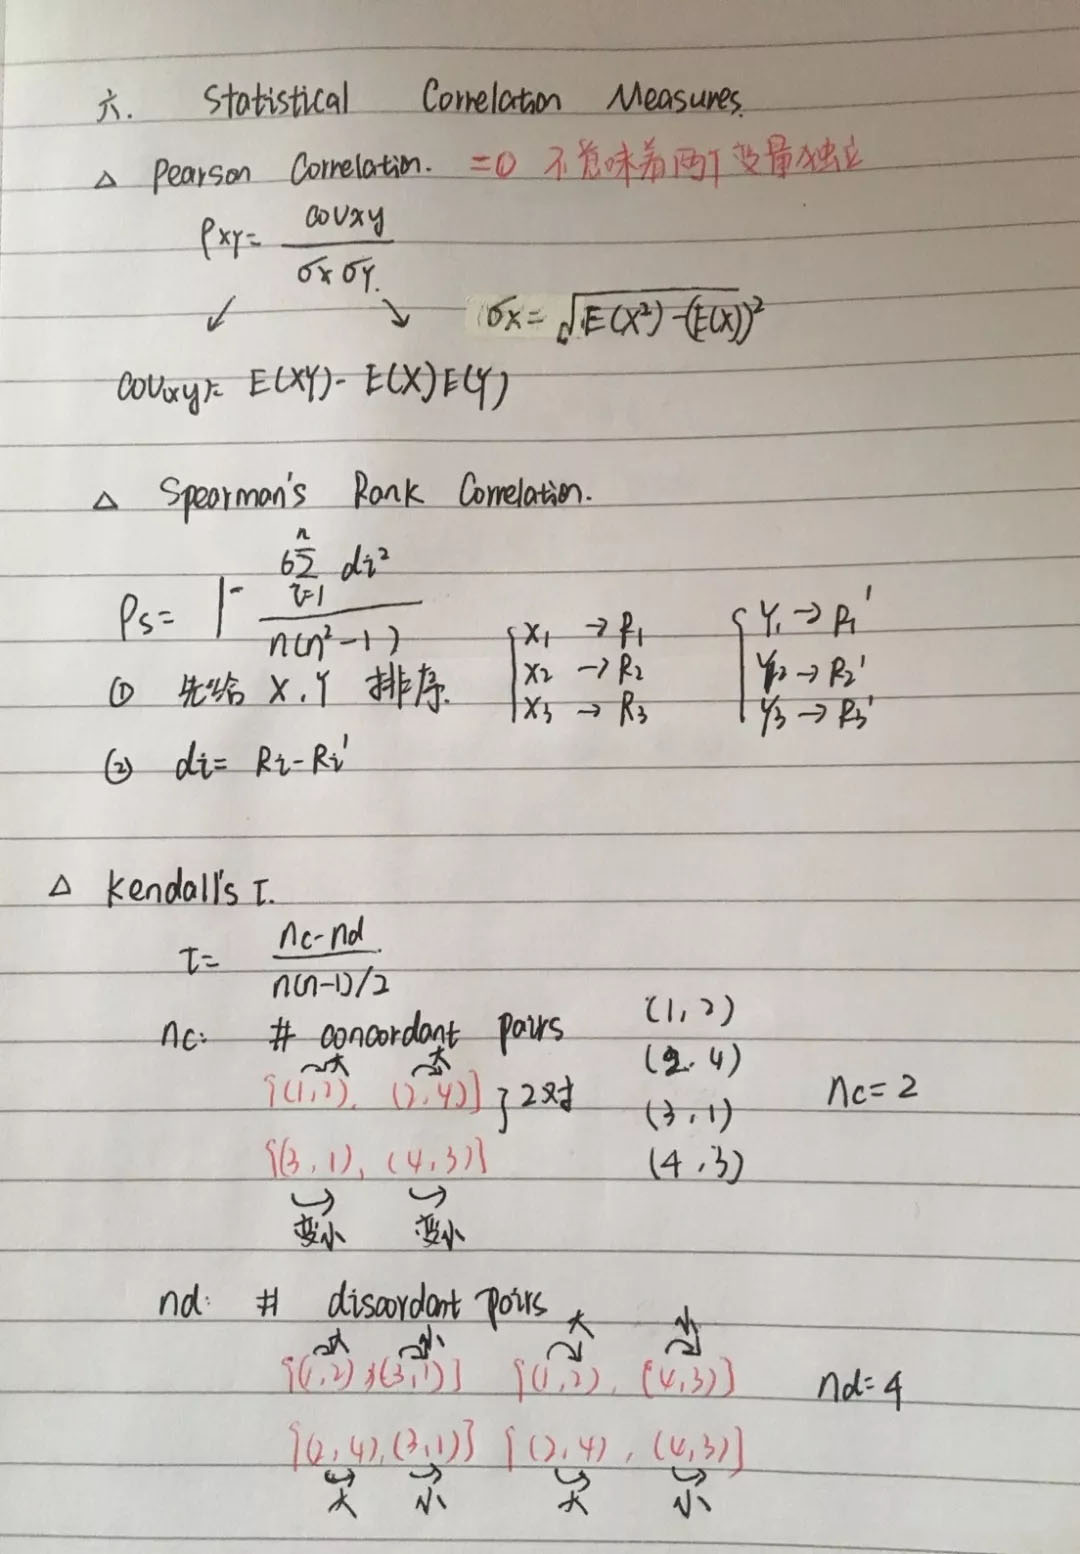 六. Statistical Correlation Measures.
△ Pearson Correlation. =0 不意味着两个变量独立
ρxy= covxy / σx σy.
σx= √E(X²)-(E(X))²
cov(xy)= E(XY)- E(X)E(Y)
△ Spearman's Rank Correlation.
ρs= 1- 6 n Σ i=1 di² / n(n²-1)
X1 → R1 Y1 → R1'
X2 → R2 Y2 → R2'
① 先给 X,Y 排序.
X3 → R3 Y3 → R3'
② di= Ri-Ri'
△ Kendall's τ.
τ= nc-nd / n(n-1)/2
nc: # concordant pairs (1,2)
(2,4)
大 大
{(1,2), (2,4)} } 2对 nc=2
(3,1)
{(3,1), (4,3)} (4,3)
变小 变小
nd: # discordant pairs
大 小 大 小
{(1,2),(3,1)} {(1,2), (4,3)} nd=4
{(2,4),(3,1)} {(2,4), (4,3)}
大 小 大 小